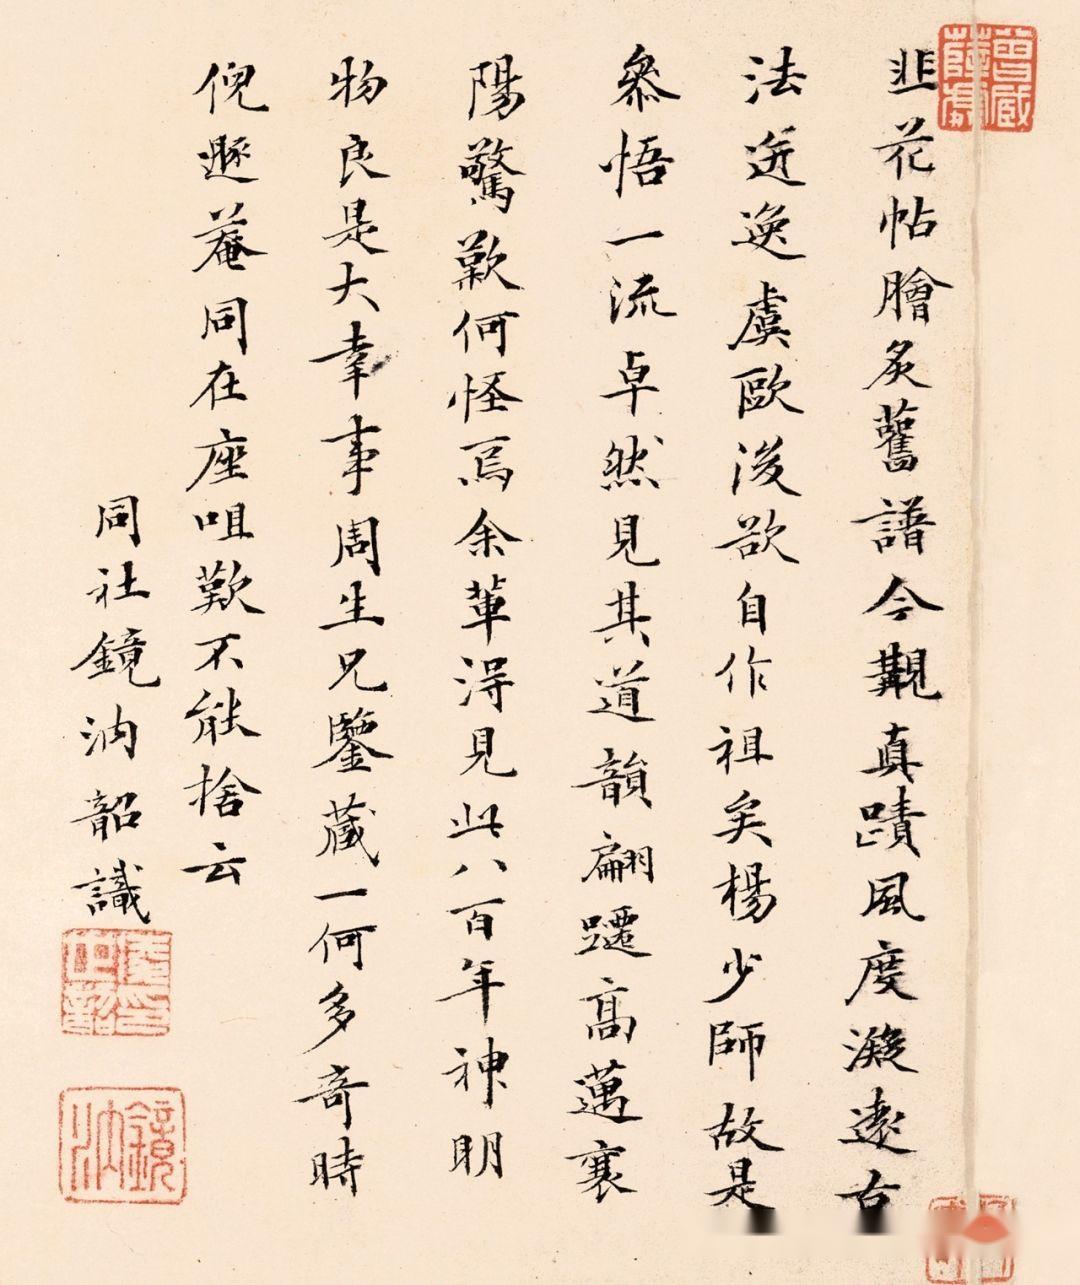 韭花帖膾炙舊譜今觀真蹟風度凝遠古
法逬逸虞歐後欲自作祖矣楊少師故是
叅悟一流卓然見其道韻翩躚高邁襄
陽驚歎何怪焉余輩得見此八百年神明
物良是大幸事周生兄鑒藏一何多奇時
倪遯菴同在座咀歎不能捨云
同社鏡汭韶識
曾藏
鏡汭